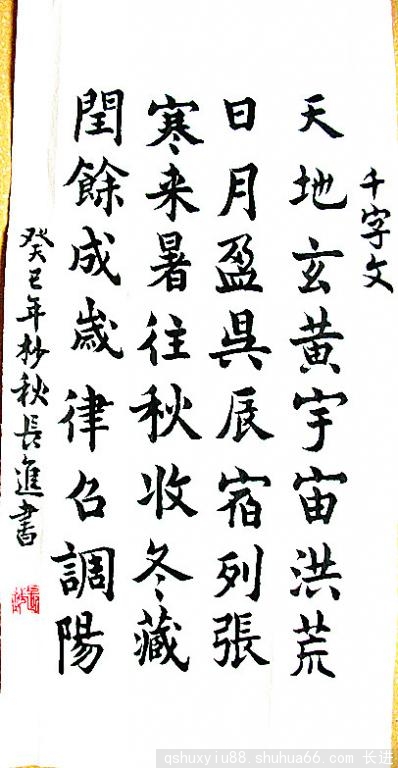 千字文
天地玄黄宇宙洪荒
日月盈呉辰宿列張
寒来暑往秋收冬藏
閏餘成歲律召調陽
癸巳年杪秋長進書
qshuxyiu88.shuhua66.com 长进